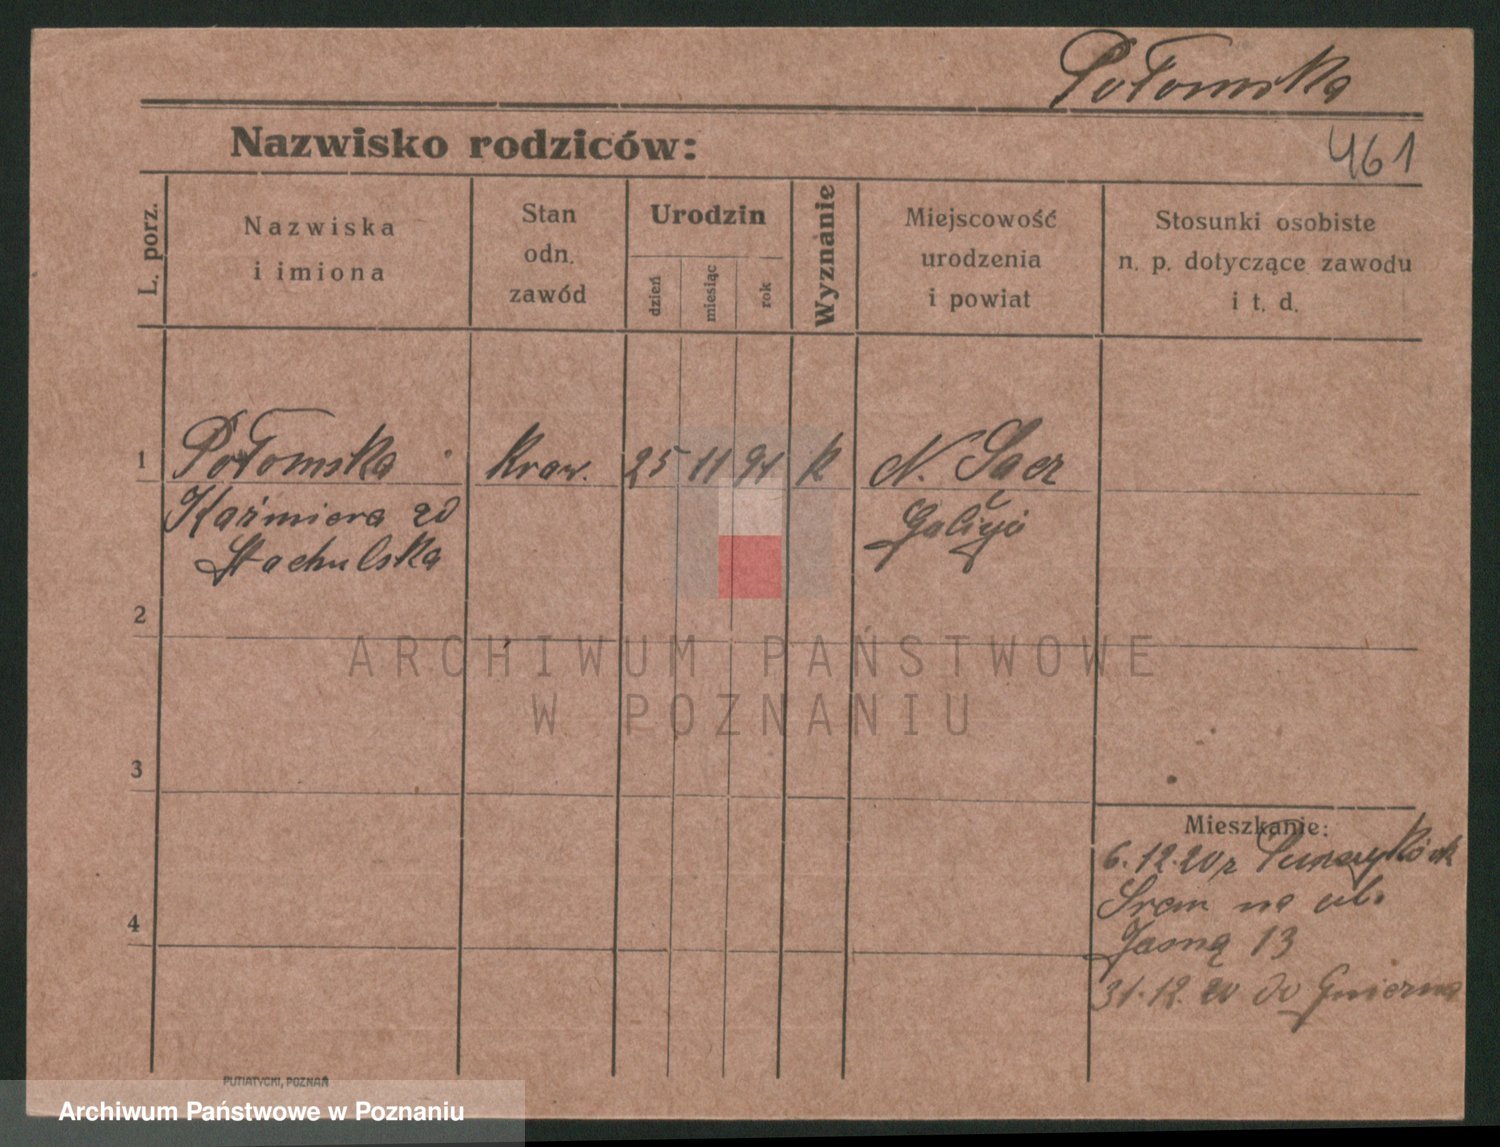 Połomska
461
Nazwisko rodziców:
L. porz.
Nazwiska
i imiona
Stan
odn.
zawód
Urodzin
dzień
miesiąc
rok
Wyznanie
Miejscowość
urodzenia
i powiat
Stosunki osobiste
n. p. dotyczące zawodu
i t. d.
1 Połomska Kraw. 25 11 94 k N. Sącz
Kaźmiera zd Galicyi
Stachulska
2
ARCHIWUM PAŃSTWOWE
W POZNANIU
3
Mieszkanie:
6.12.20r
Śrem na ul.
4
Jasną 13
31.12.20 do Gniezna
PUTIATYCKI, POZNAŃ
Archiwum Państwowe w Poznaniu